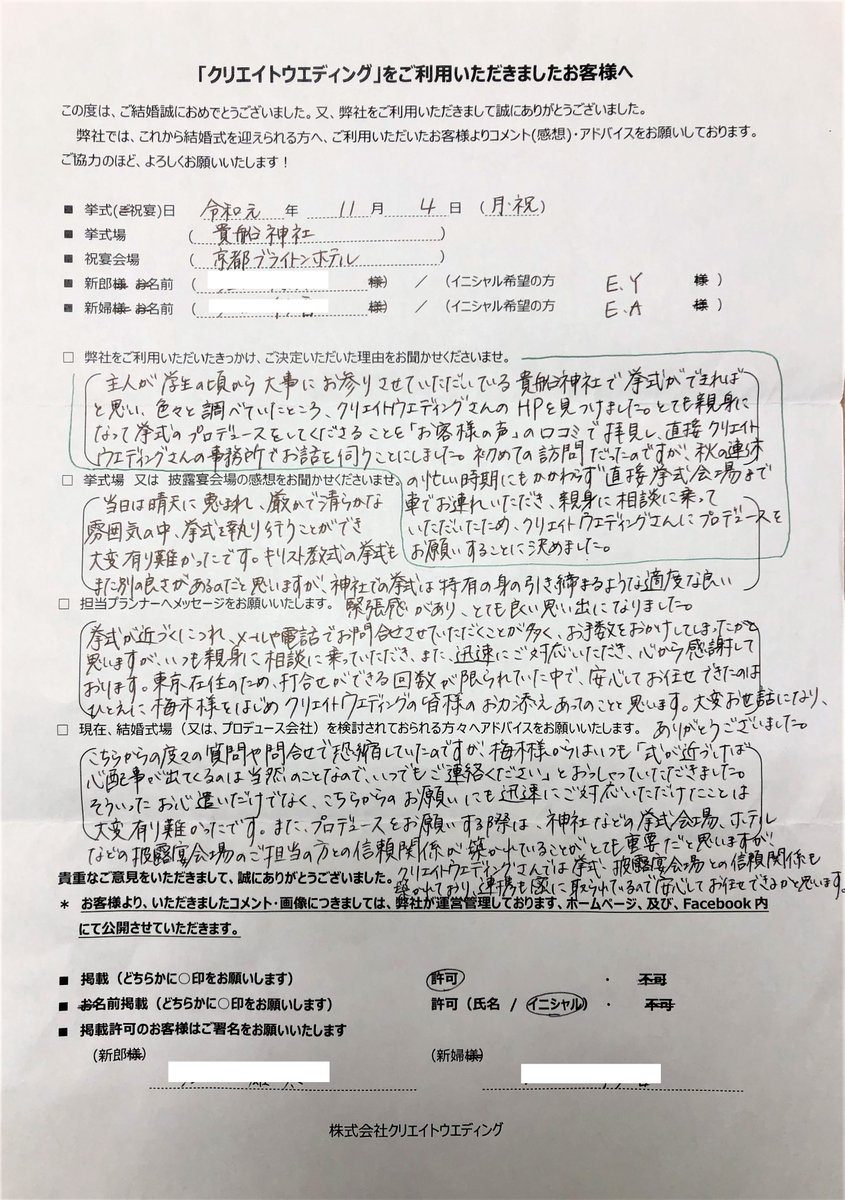 「クリエイトウエディング」をご利用いただきましたお客様へ
この度は、ご結婚誠におめでとうございました。又、弊社をご利用いただきまして誠にありがとうございました。
弊社では、これから結婚式を迎えられる方へ、ご利用いただいたお客様よりコメント(感想)・アドバイスをお願いしております。
ご協力のほど、よろしくお願いいたします！
■ 挙式(ご祝宴)日 令和元 年 11 月 4 日 (月・祝)
■ 挙式場 ( 貴船神社 )
■ 祝宴会場 ( 京都ブライトンホテル )
■ 新郎様 お名前 ( 様) / (イニシャル希望の方 E.Y 様 )
■ 新婦様 お名前 ( 様) / (イニシャル希望の方 E.A 様 )
□ 弊社をご利用いただいたきっかけ、ご決定いただいた理由をお聞かせくださいませ。
主人が学生の頃から大事にお参りさせていただいている貴船神社で挙式ができれば
と思い、色々と調べていたところ、クリエイトウエディングさんのHPを見つけました。とても親身に
なって挙式のプロデュースをしてくださることを「お客様の声」の口コミで拝見し、直接クリエイト
ウエディングさんの事務所でお話を伺うことにしました。初めての訪問だったのですが、秋の連休
の忙しい時期にもかかわらず直接挙式会場まで
車でお連れいただき、親身に相談に乗って
いただいたため、クリエイトウエディングさんにプロデュースを
お願いすることに決めました。
□ 挙式場 又は 披露宴会場の感想をお聞かせくださいませ。
当日は晴天に恵まれ、厳かで清らかな
雰囲気の中、挙式を執り行うことができ
大変有り難かったです。キリスト教式の挙式も
また別の良さがあるのだと思いますが、神社での挙式は特有の身の引き締まるような適度な良い
緊張感があり、とても良い思い出になりました。
□ 担当プランナーへメッセージをお願いいたします。
挙式が近づくにつれ、メールや電話でお問合せさせていただくことが多く、お手数をおかけしてしまったかと
思いますが、いつも親身に相談に乗っていただき、また、迅速にご対応いただき、心から感謝して
おります。東京在住のため、打合せができる回数が限られていた中で、安心してお任せできたのは
ひとえに梅木様をはじめクリエイトウエディングの皆様のお力添えあってのことと思います。大変お世話になり、
ありがとうございました。
□ 現在、結婚式場（又は、プロデュース会社）を検討されておられる方々へアドバイスをお願いいたします。
こちらからの度々の質問や問合せで恐縮していたのですが、梅林様からはいつも「式が近づけば
心配事が出てくるのは当然のことなので、いつでもご連絡ください」とおっしゃっていただきました。
そういったお心遣いだけでなく、こちらからのお願いにも迅速にご対応いただけたことは
大変有り難かったです。また、プロデュースをお願いする際は、神社などの挙式会場、ホテル
などの披露宴会場のご担当の方との信頼関係が築かれていることがとても重要だと思いますが、
クリエイトウエディングさんでは挙式、披露宴会場との信頼関係も
築かれており、連携も密に取られているので安心してお任せできるかと思います。
貴重なご意見をいただきまして、誠にありがとうございました。
＊ お客様より、いただきましたコメント・画像につきましては、弊社が運営管理しております、ホームページ、及び、Facebook 内
にて公開させていただきます。
■ 掲載（どちらかに○印をお願いします） 許可 ・ 不可
■ お名前掲載（どちらかに○印をお願いします） 許可（氏名 / イニシャル）・ 不可
■ 掲載許可のお客様はご署名をお願いいたします
(新郎様) (新婦様)
株式会社クリエイトウエディング